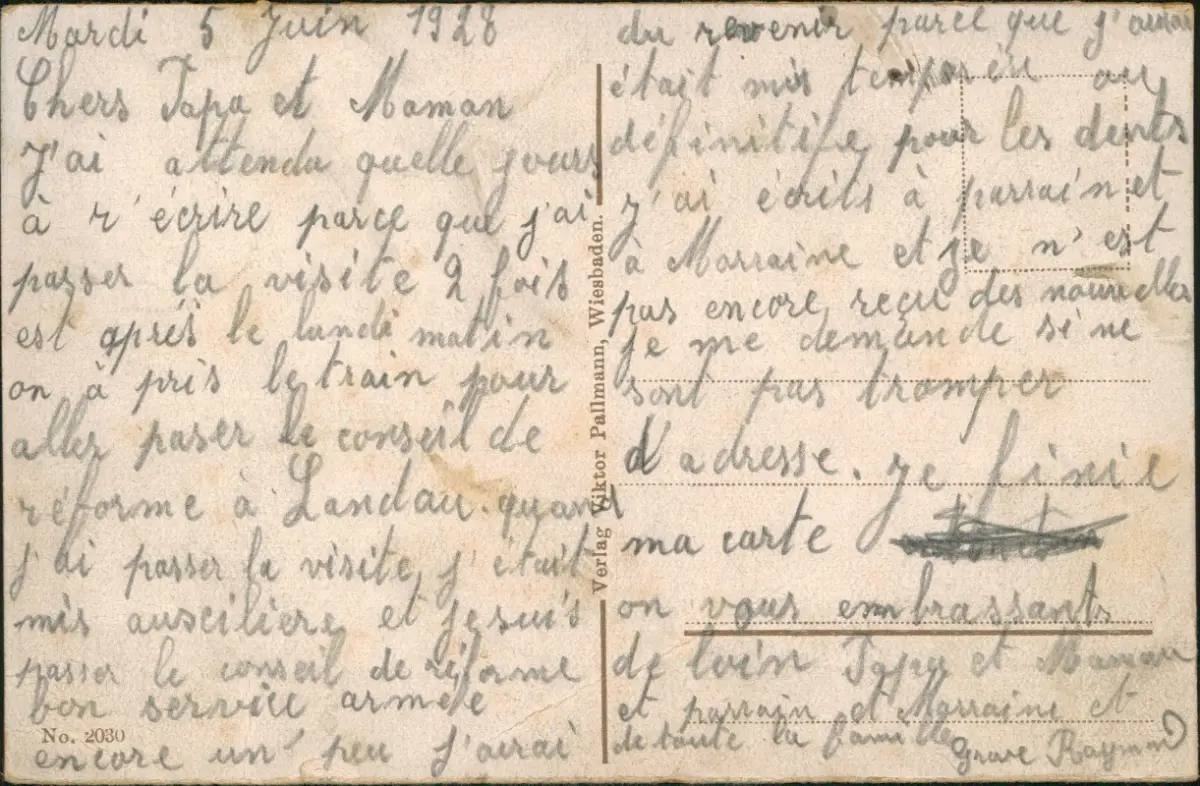 Mardi 5 Juin 1928
Chers Papa et Maman
J'ai attendu quelle jours
à r'écrire parce que j'ai
passer la visite 2 fois
est après le lundi matin
on à pris le train pour
aller paser le conseil de
réforme à Landau. quand
j'ai passer la visite j'était
mis auxciliere et je suis
passer le conseil de réforme
bon service armée
No. 2030
encore un peu j'aurai
Verlag Viktor Pallmann, Wiesbaden.
du revenir parce que j'aurai
était mis temporin ou
définitife pour les dents
j'ai écrits à parrain et
à Marraine et je n'est
pas encore reçu des nouvelles
je me demande si ne
sont pas tromper
d'adresse. je finie
ma carte
on vous embrassants
de loin Papa et Maman
et parrain et Marraine et
de toute la famille
Grave Raymond